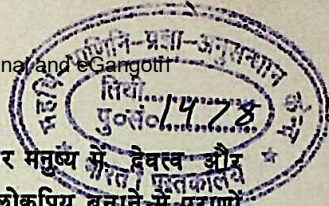 nai and eGangotri
महर्षि पाणिनि-प्रज्ञा-अनुसन्धान केन्द्र
तिथी..........
पु०सं०1478
भारती पुस्तकालय
र मनुष्य में देवत्व और
लोकप्रिय बनाने में पुराणों